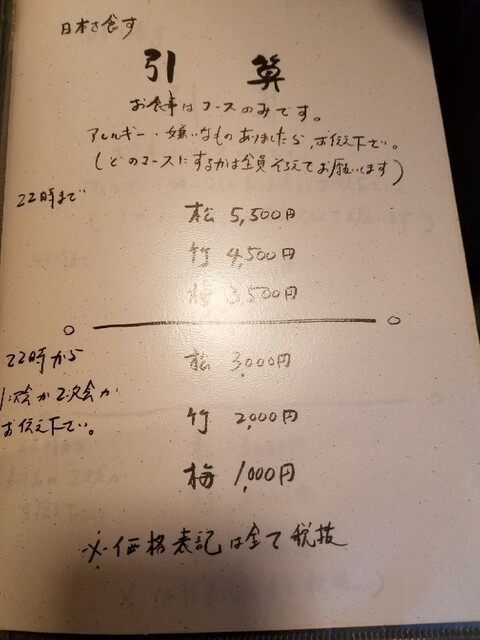 日本を食す
引算
お食事はコースのみです。
アレルギー・嫌いなものありましたら、お伝え下さい。
(どのコースにするかは全員そろえてお願いします)
22時まで
松 5,500円
竹 4,500円
梅 3,500円
22時から
1次会か2次会か
お伝え下さい。
松 3,000円
竹 2,000円
梅 1,000円
※価格表記は全て税抜